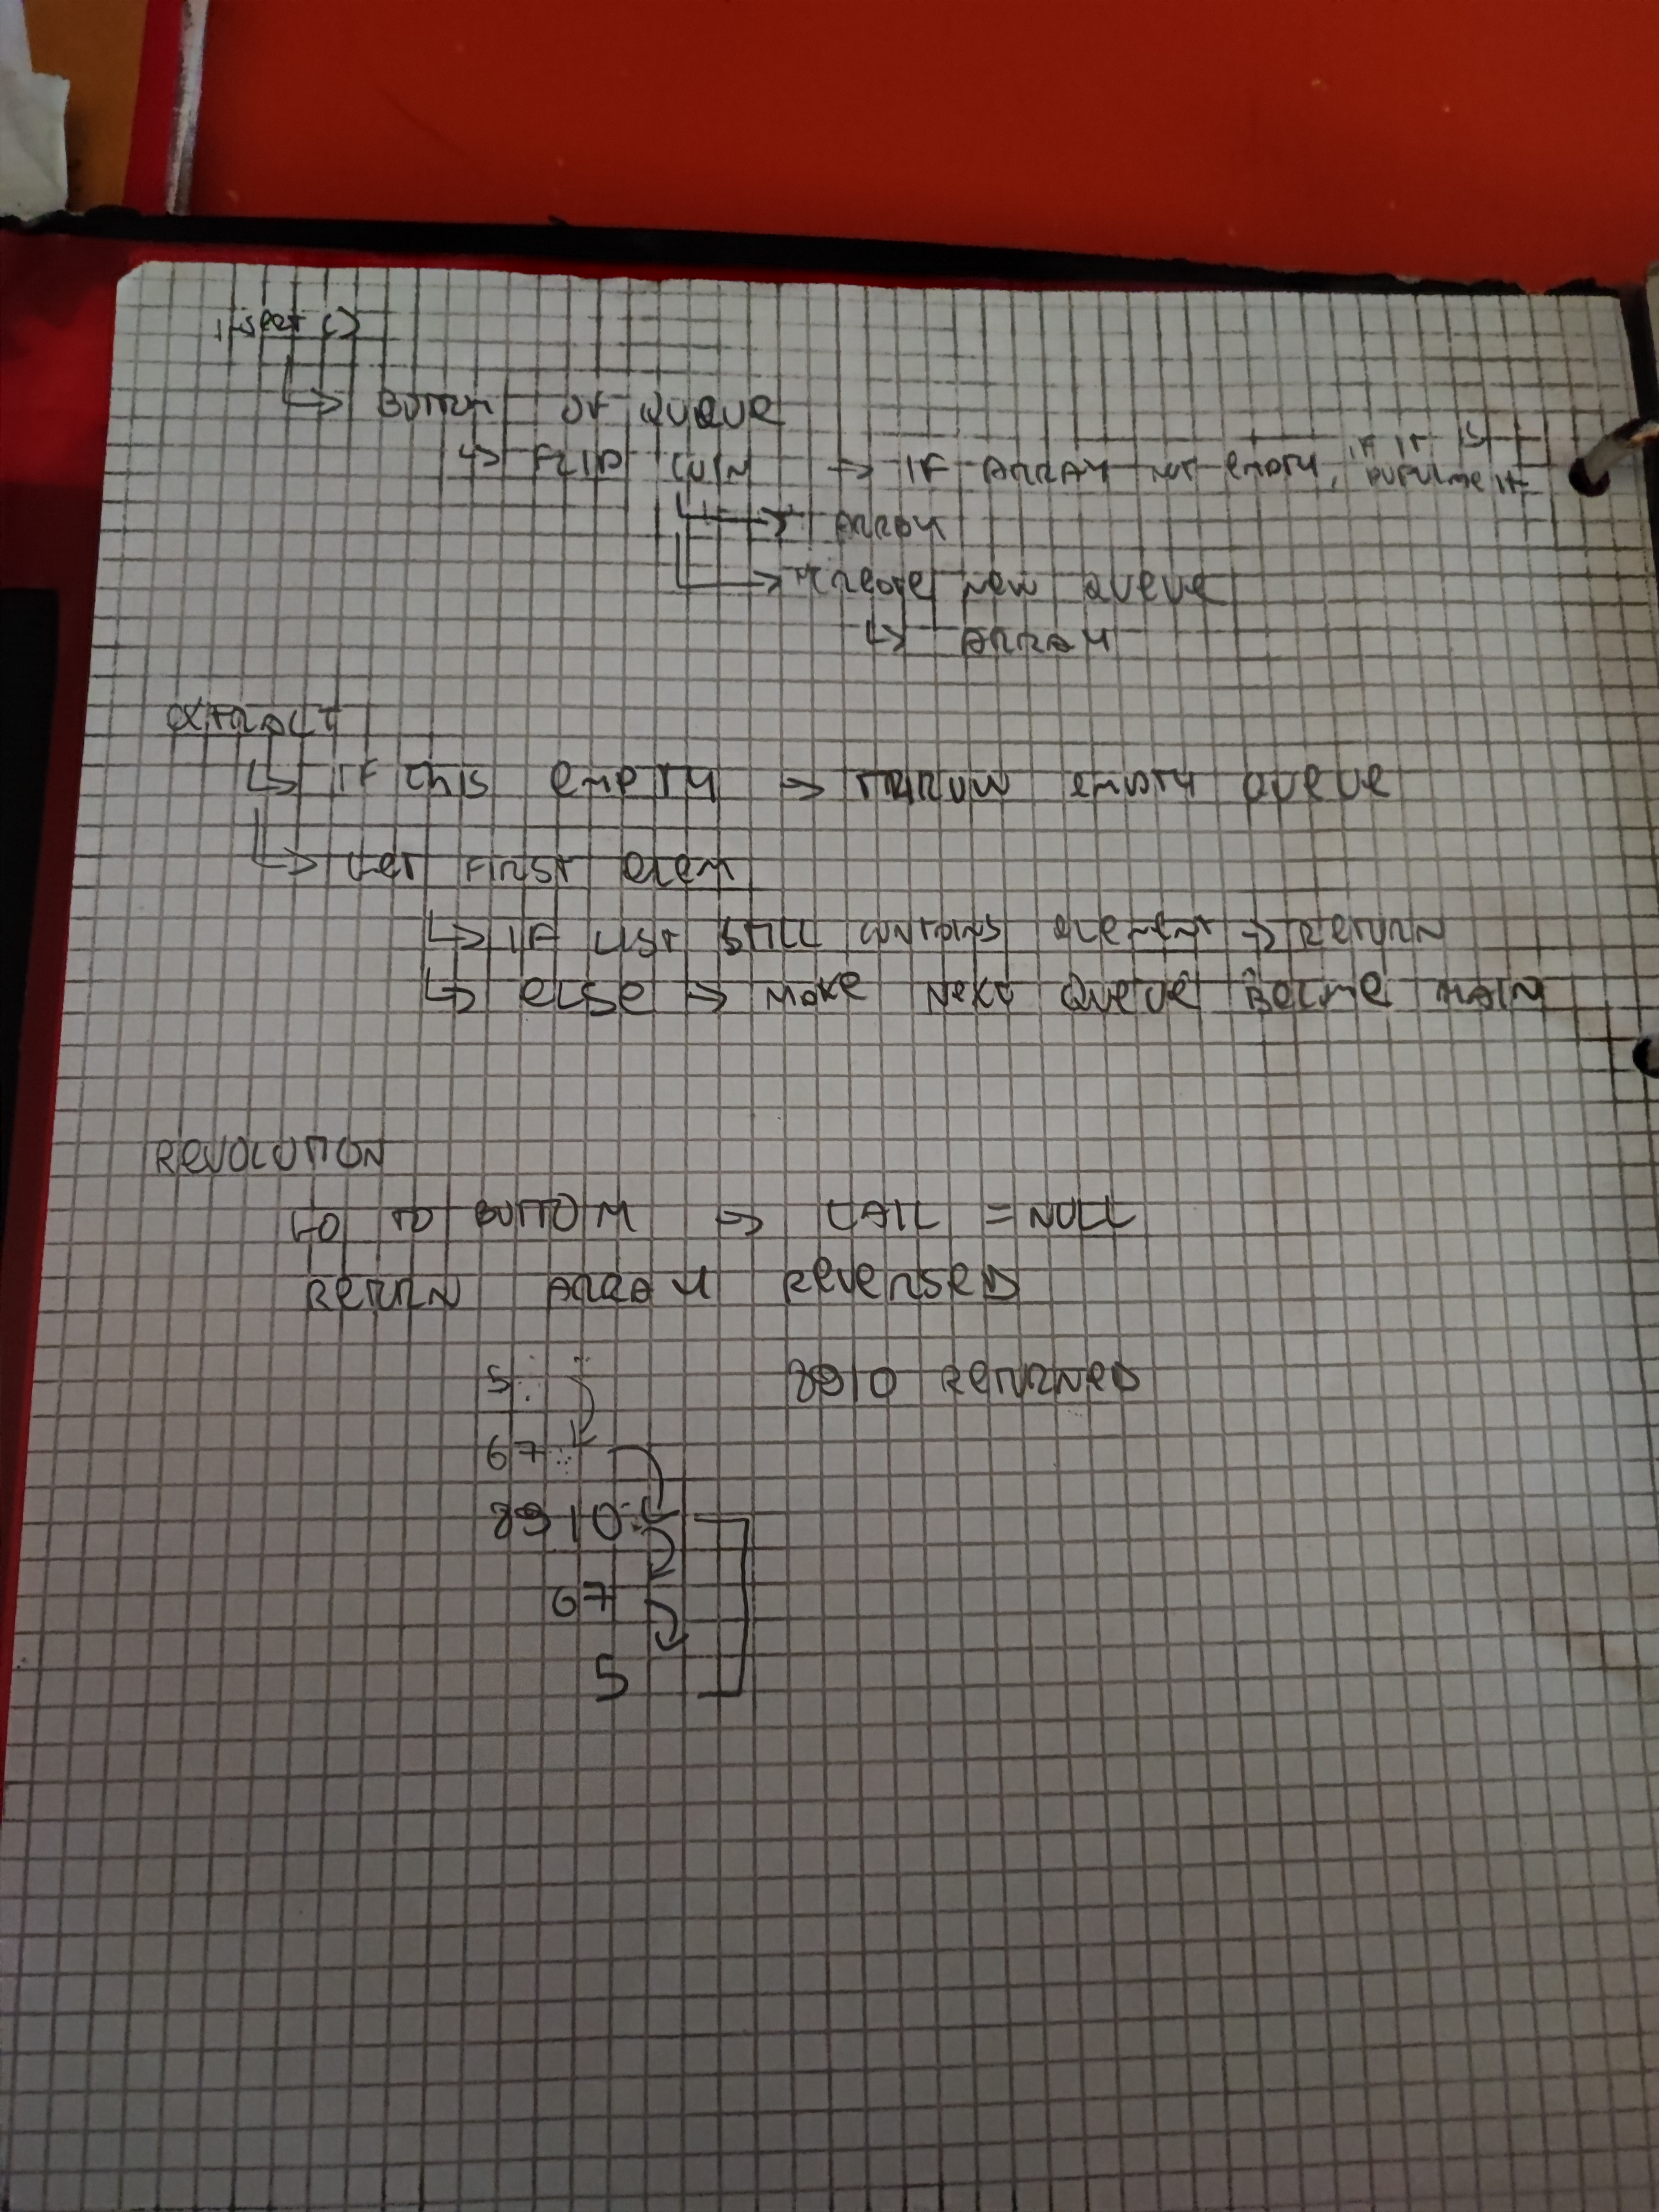 Insert ()
↳ BOTTOM OF QUEUE
↳ FLIP COIN → IF ARRAY NOT empty, IF IT IS POPULATE IT
↳ ARRAY
↳ CREATE New QUEUE
↳ ARRAY
EXTRACT
↳ IF this empty → THROW empty QUEUE
↳ GET FIRST ELEM
↳ IF LIST STILL CONTAINS ELEMENT → RETURN
↳ ELSE → MAKE NEXT QUEUE BECOME MAIN
REVOLUTION
GO TO BOTTOM → = NULL
RETURN ARRAY REVERSED
5 8910 RETURNED
67
8910
67
5